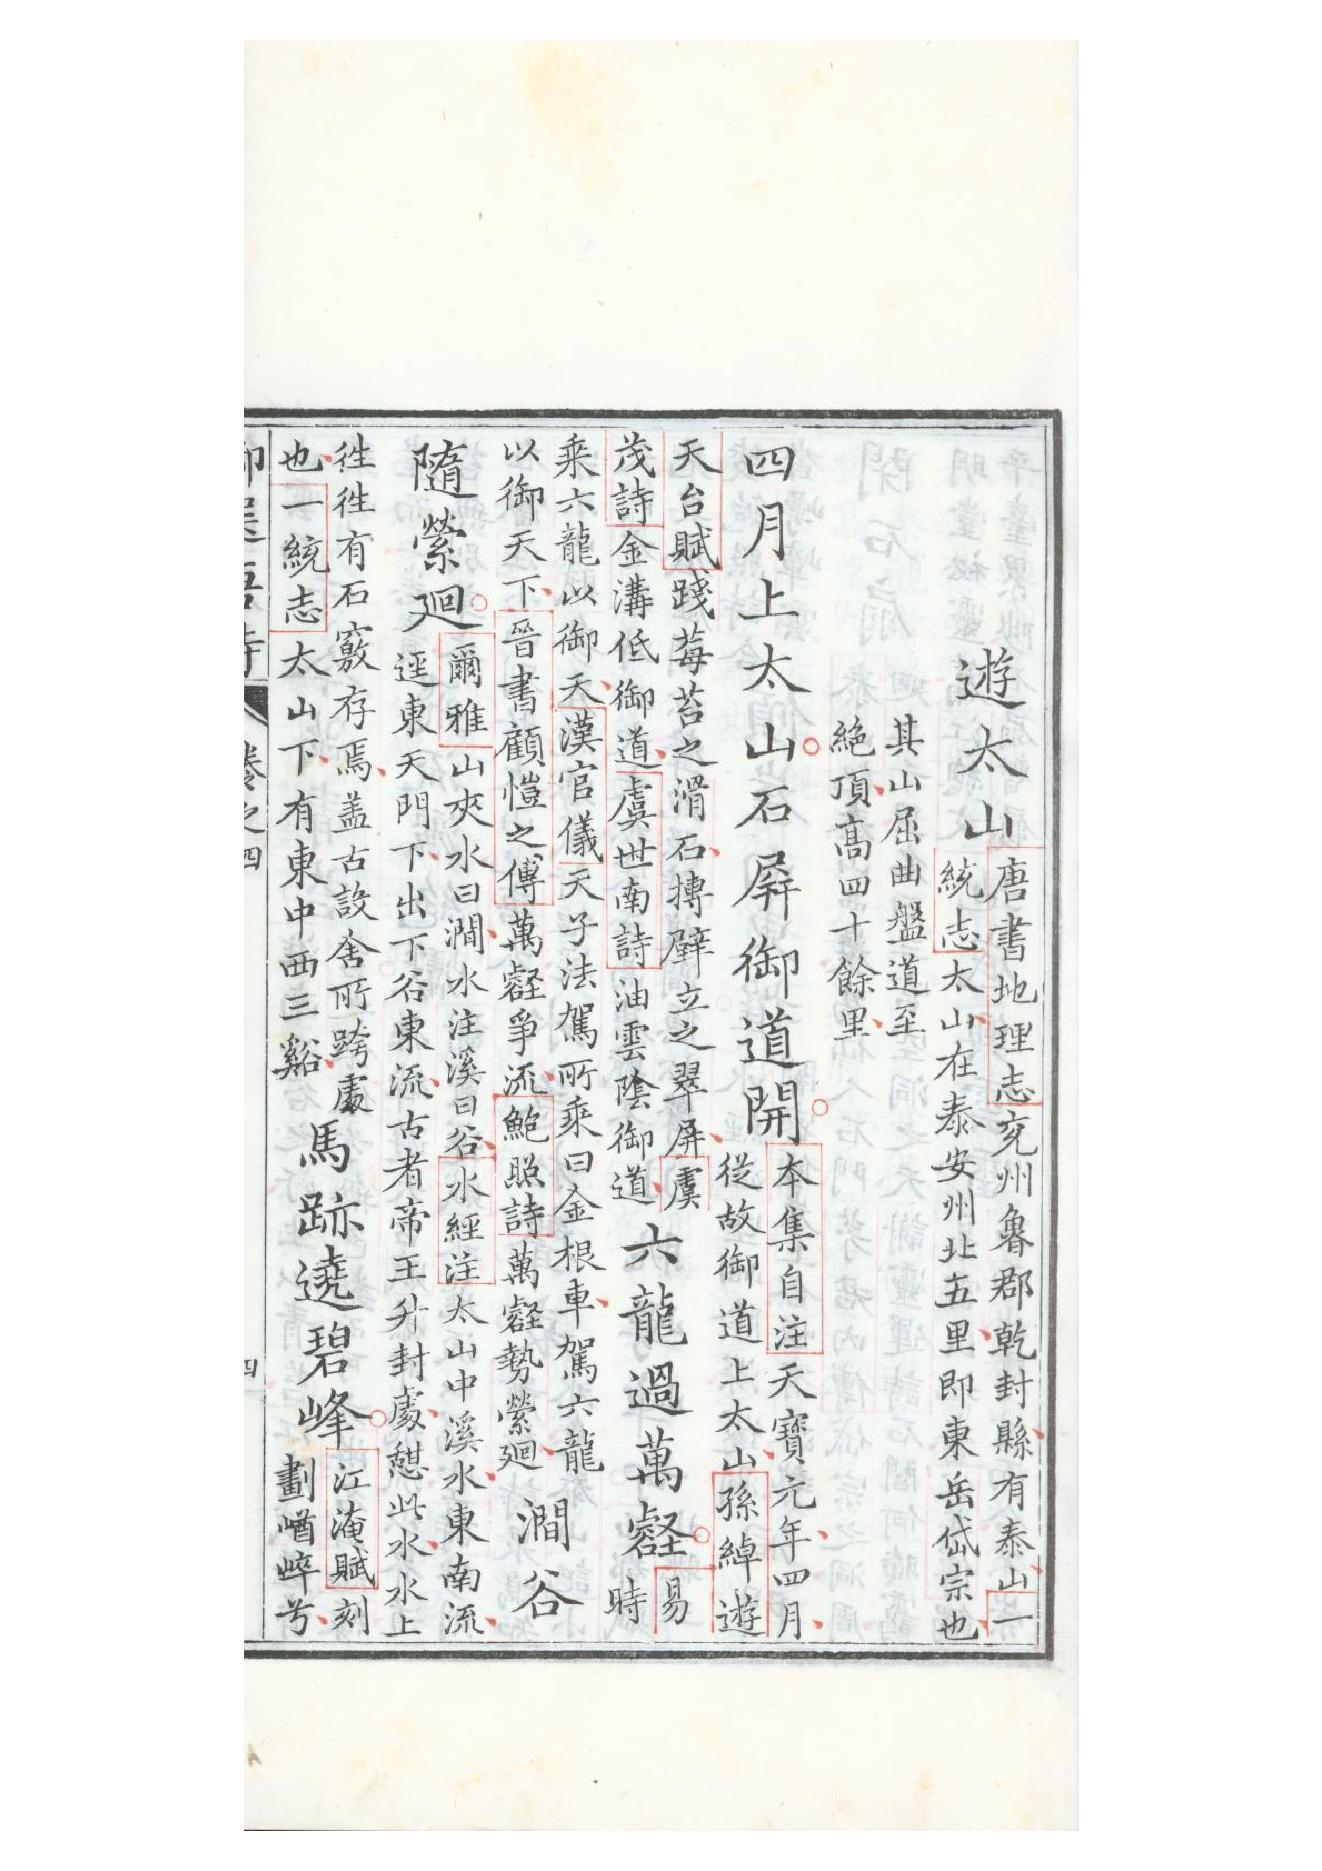 遊太山
唐書地理志兗州魯郡乾封縣有泰山一
統志太山在泰安州北五里即東岳岱宗也
其山屈曲盤道至
絶頂高四十餘里
四月上太山石屏御道開
本集自注天寶元年四月
從故御道上太山孫綽遊
天台賦踐莓苔之滑石搏壁立之翠屏虞
茂詩金溝低御道虞世南詩油雲陰御道
六龍過萬壑
易
時
乘六龍以御天漢官儀天子法駕所乘曰金根車駕六龍
以御天下晉書顧愷之傳萬壑爭流鮑照詩萬壑勢縈迴
澗谷
隨縈迴
爾雅山夾水曰澗水注溪曰谷水經注太山中溪水東南流
逕東天門下出下谷東流古者帝王升封處憇此水水上
徃徃有石竅存焉盖古設舍所跨處
也一統志太山下有東中西三谿
馬跡遶碧峰
江淹賦刻
劃崷崒兮
卷之四
四